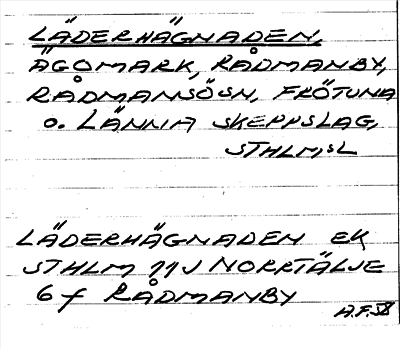 LÄDERHÄGNADEN,
ÄGOMARK, RÅDMANBY,
RÅDMANSÖSN, FRÖTUNA
o. LÄNNA SKEPPSLAG,
STHLMSL
LÄDERHÄGNADEN EK
STHLM 11J NORRTÄLJE
6f RÅDMANBY
A.F.58